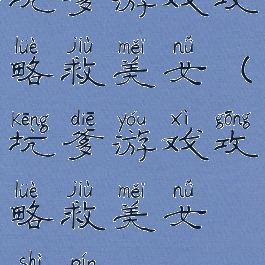 lüè jiù měi nǚ
略救美女（
kēng diē yóu xì gōng
坑爹游戏攻
lüè jiù měi nǚ
略救美女
shì pín